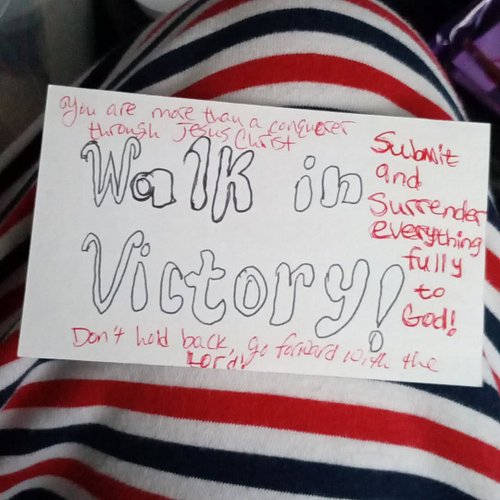 You are more than a conquerer
through Jesus Christ
Walk in
Victory!
Submit
and
Surrender
everything
fully
to
God!
Don't hold back, go forward with the
Lord!